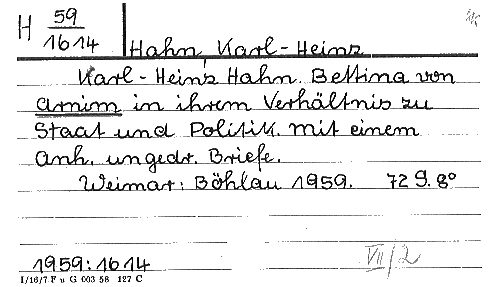 H 59
1614
Hahn, Karl-Heinz
Karl-Heinz Hahn. Bettina von
Arnim in ihrem Verhältnis zu
Staat und Politik. Mit einem
Anh. ungedr. Briefe.
Weimar: Böhlau 1959. 72 S. 8°
VII/2
1959:1614
I/16/7 F u G 003 58 127 C